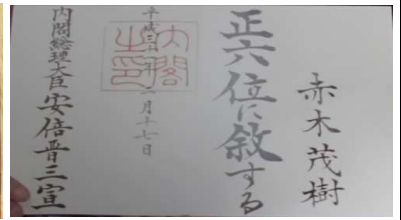 赤木茂樹
正六位に叙する
平成三 月十七日
内閣
之印
内閣総理大臣 安倍晋三宣